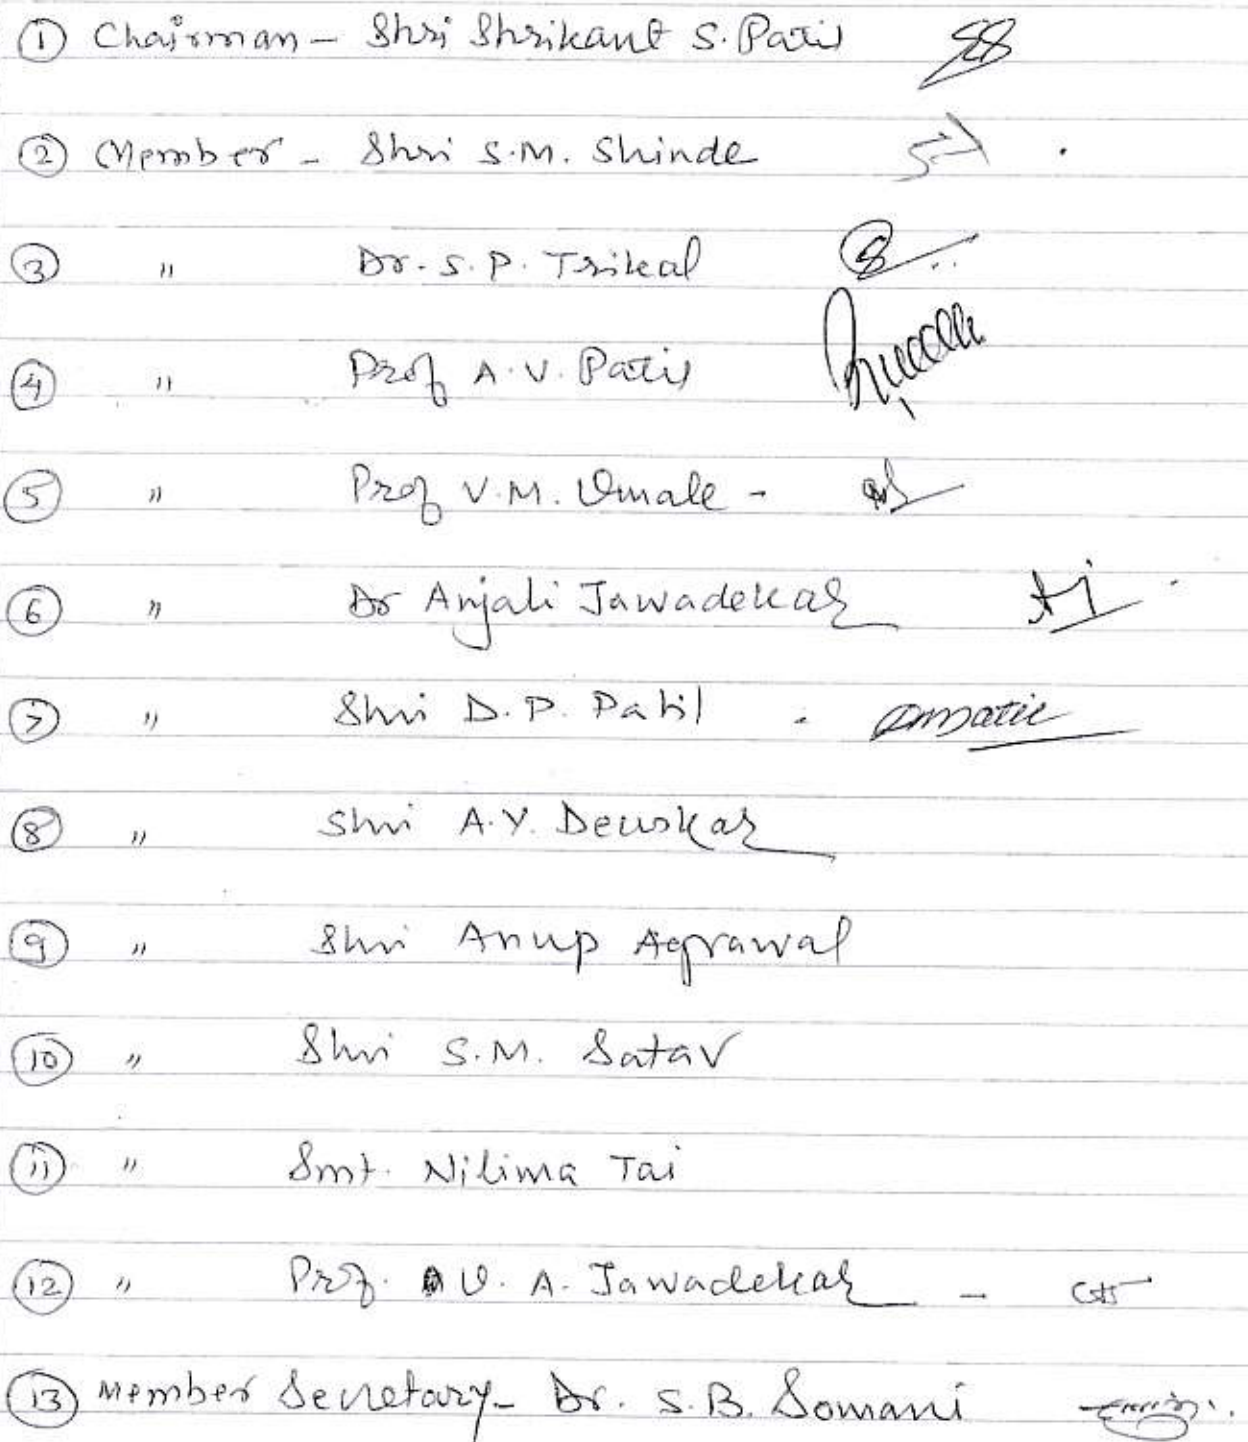 ① Chairman - Shri Shrikant S. Patil
② Member - Shri S.M. Shinde
③ " Dr. S. P. Trikal
④ " Prof A. V. Patil
⑤ " Prof V. M. Umale -
⑥ " Dr Anjali Jawadekar
⑦ " Shri D. P. Patil
⑧ " Shri A.Y. Deuskar
⑨ " Shri Anup Agrawal
⑩ " Shri S.M. Satav
⑪ " Smt. Nilima Tai
⑫ " Prof. U. A. Jawadekar -
⑬ Member Secretary - Dr. S. B. Somani